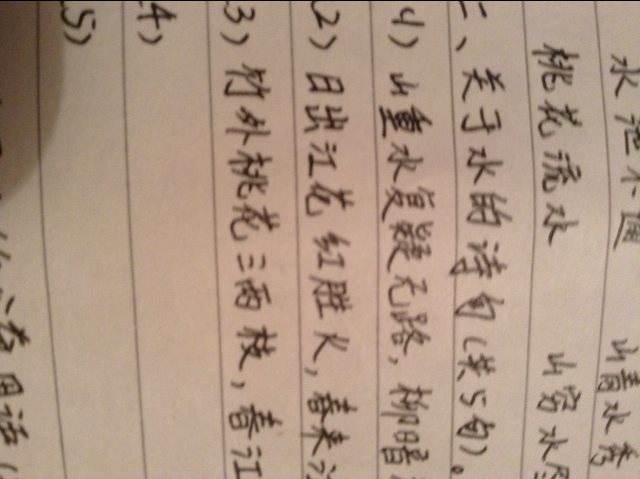 水泄不通 山青水秀
桃花流水 山穷水
二、关于水的诗句(共5句)。
1) 山重水复疑无路,柳暗
2) 日出江花红胜火,春来江
3) 竹外桃花三两枝,春江
4)
5)
用语(